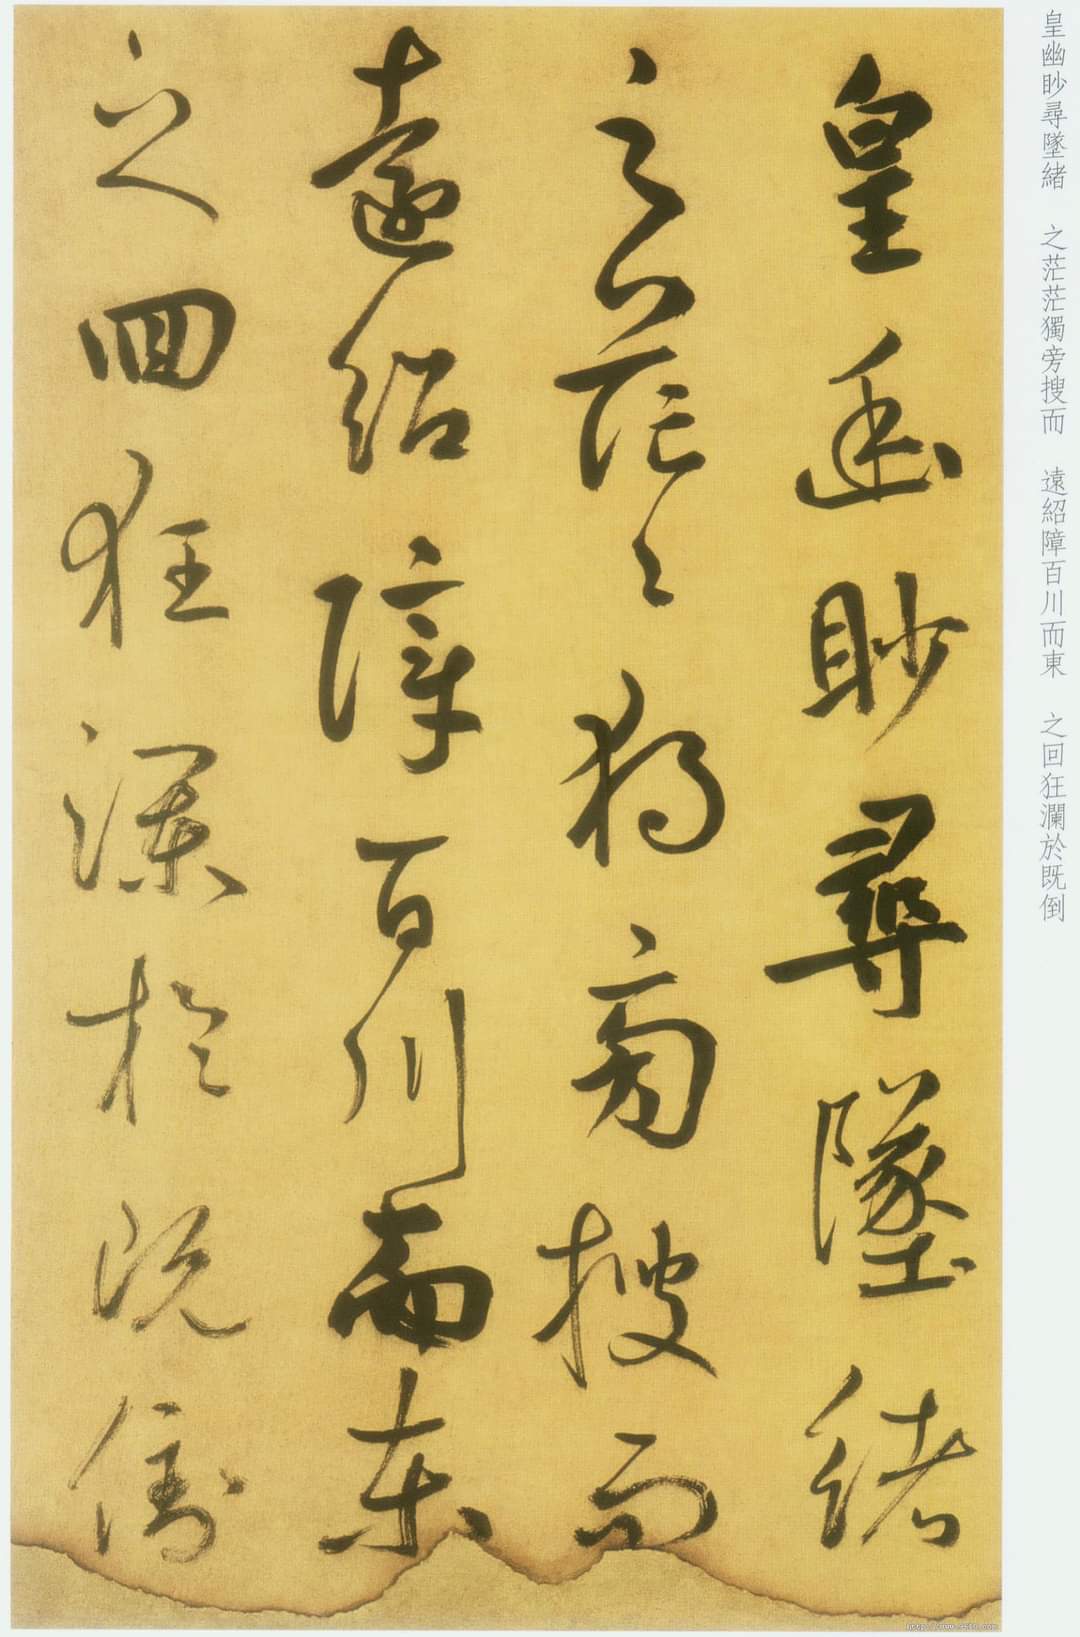 皇幽眇尋墜緒 之茫茫獨旁搜而 遠紹障百川而東 之回狂瀾於既倒
皇幽眇尋墜緒
之茫々獨旁搜而
遠紹障百川而東
之回狂瀾於既倒